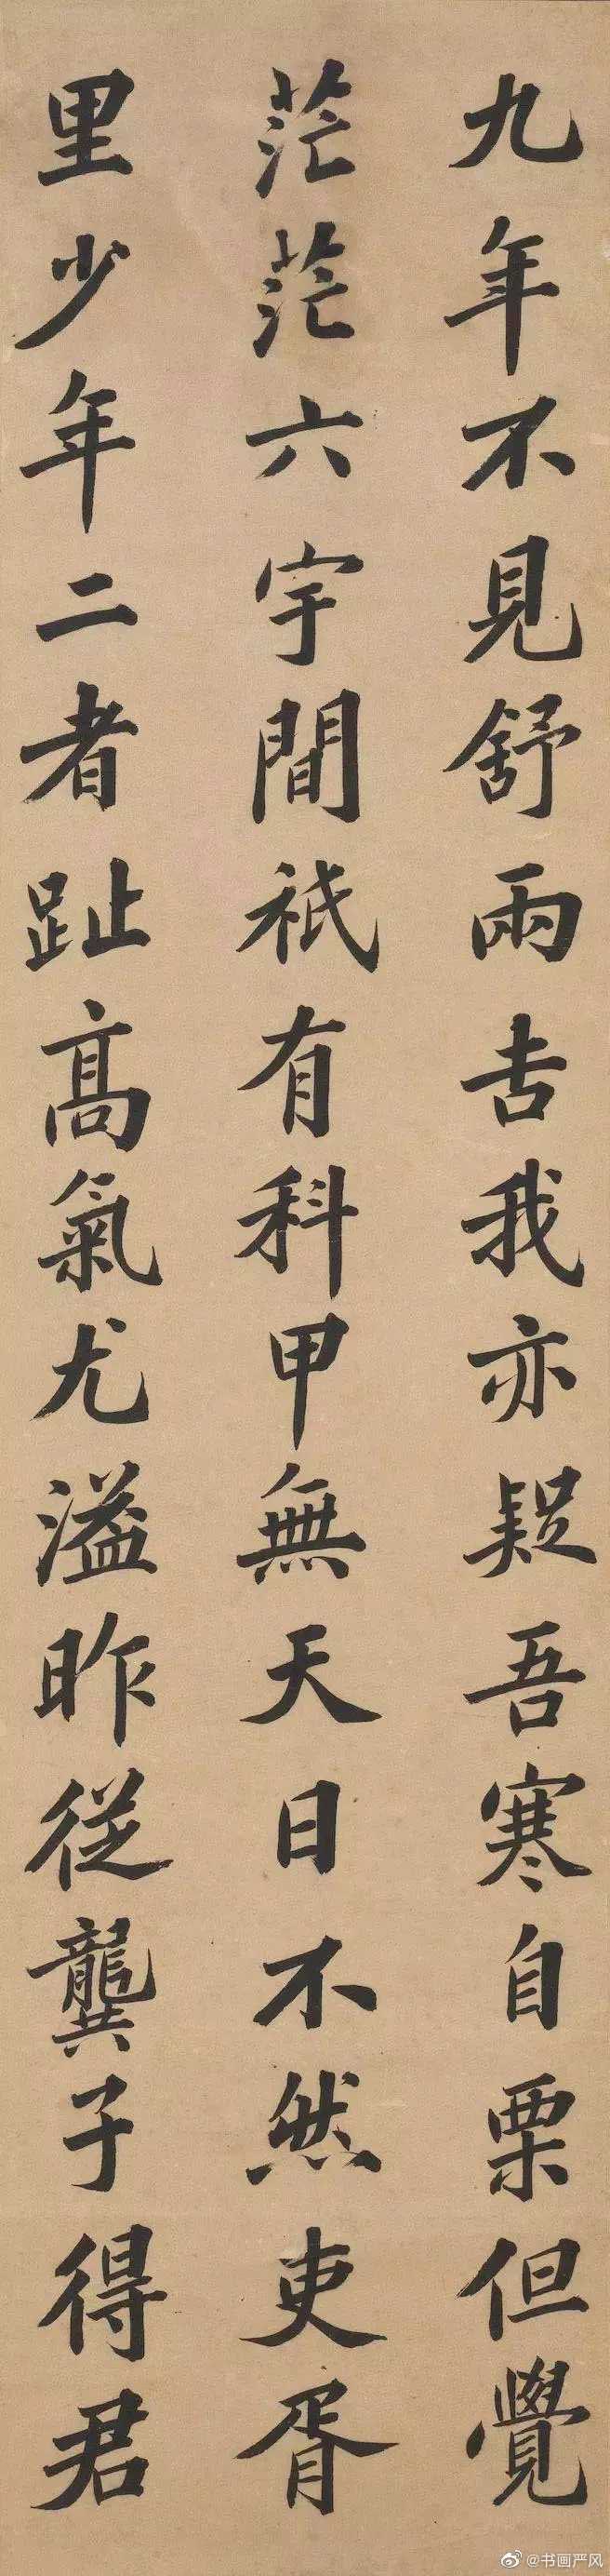 九年不見舒雨吉我亦疑吾寒自栗但覺
茫茫六宇間祇有科甲無天日不然吏胥
里少年二者趾高氣尤溢昨從龔子得君
@书画严风